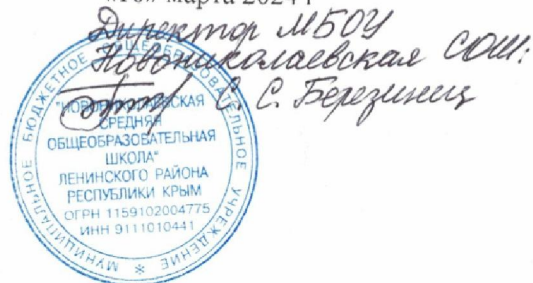 марта 2024 г
Директор МБОУ
Новониколаевская СОШ:
С. С. Березинец
МУНИЦИПАЛЬНОЕ БЮДЖЕТНОЕ ОБЩЕОБРАЗОВАТЕЛЬНОЕ УЧРЕЖДЕНИЕ *
"НОВОНИКОЛАЕВСКАЯ
СРЕДНЯЯ
ОБЩЕОБРАЗОВАТЕЛЬНАЯ
ШКОЛА"
ЛЕНИНСКОГО РАЙОНА
РЕСПУБЛИКИ КРЫМ
ОГРН 1159102004775
ИНН 9111010441